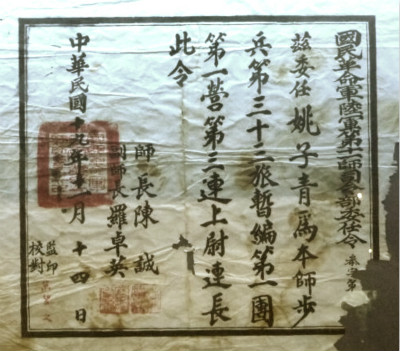 國民革命軍陸軍第十一師司令部委任令
參字第
茲委任姚子青爲本師步
兵第三十三旅暫編第一團
第一營第三連上尉連長
此令
師長陳誠
副師長羅卓英
中華民國十九年十一月十四日
監印
校對